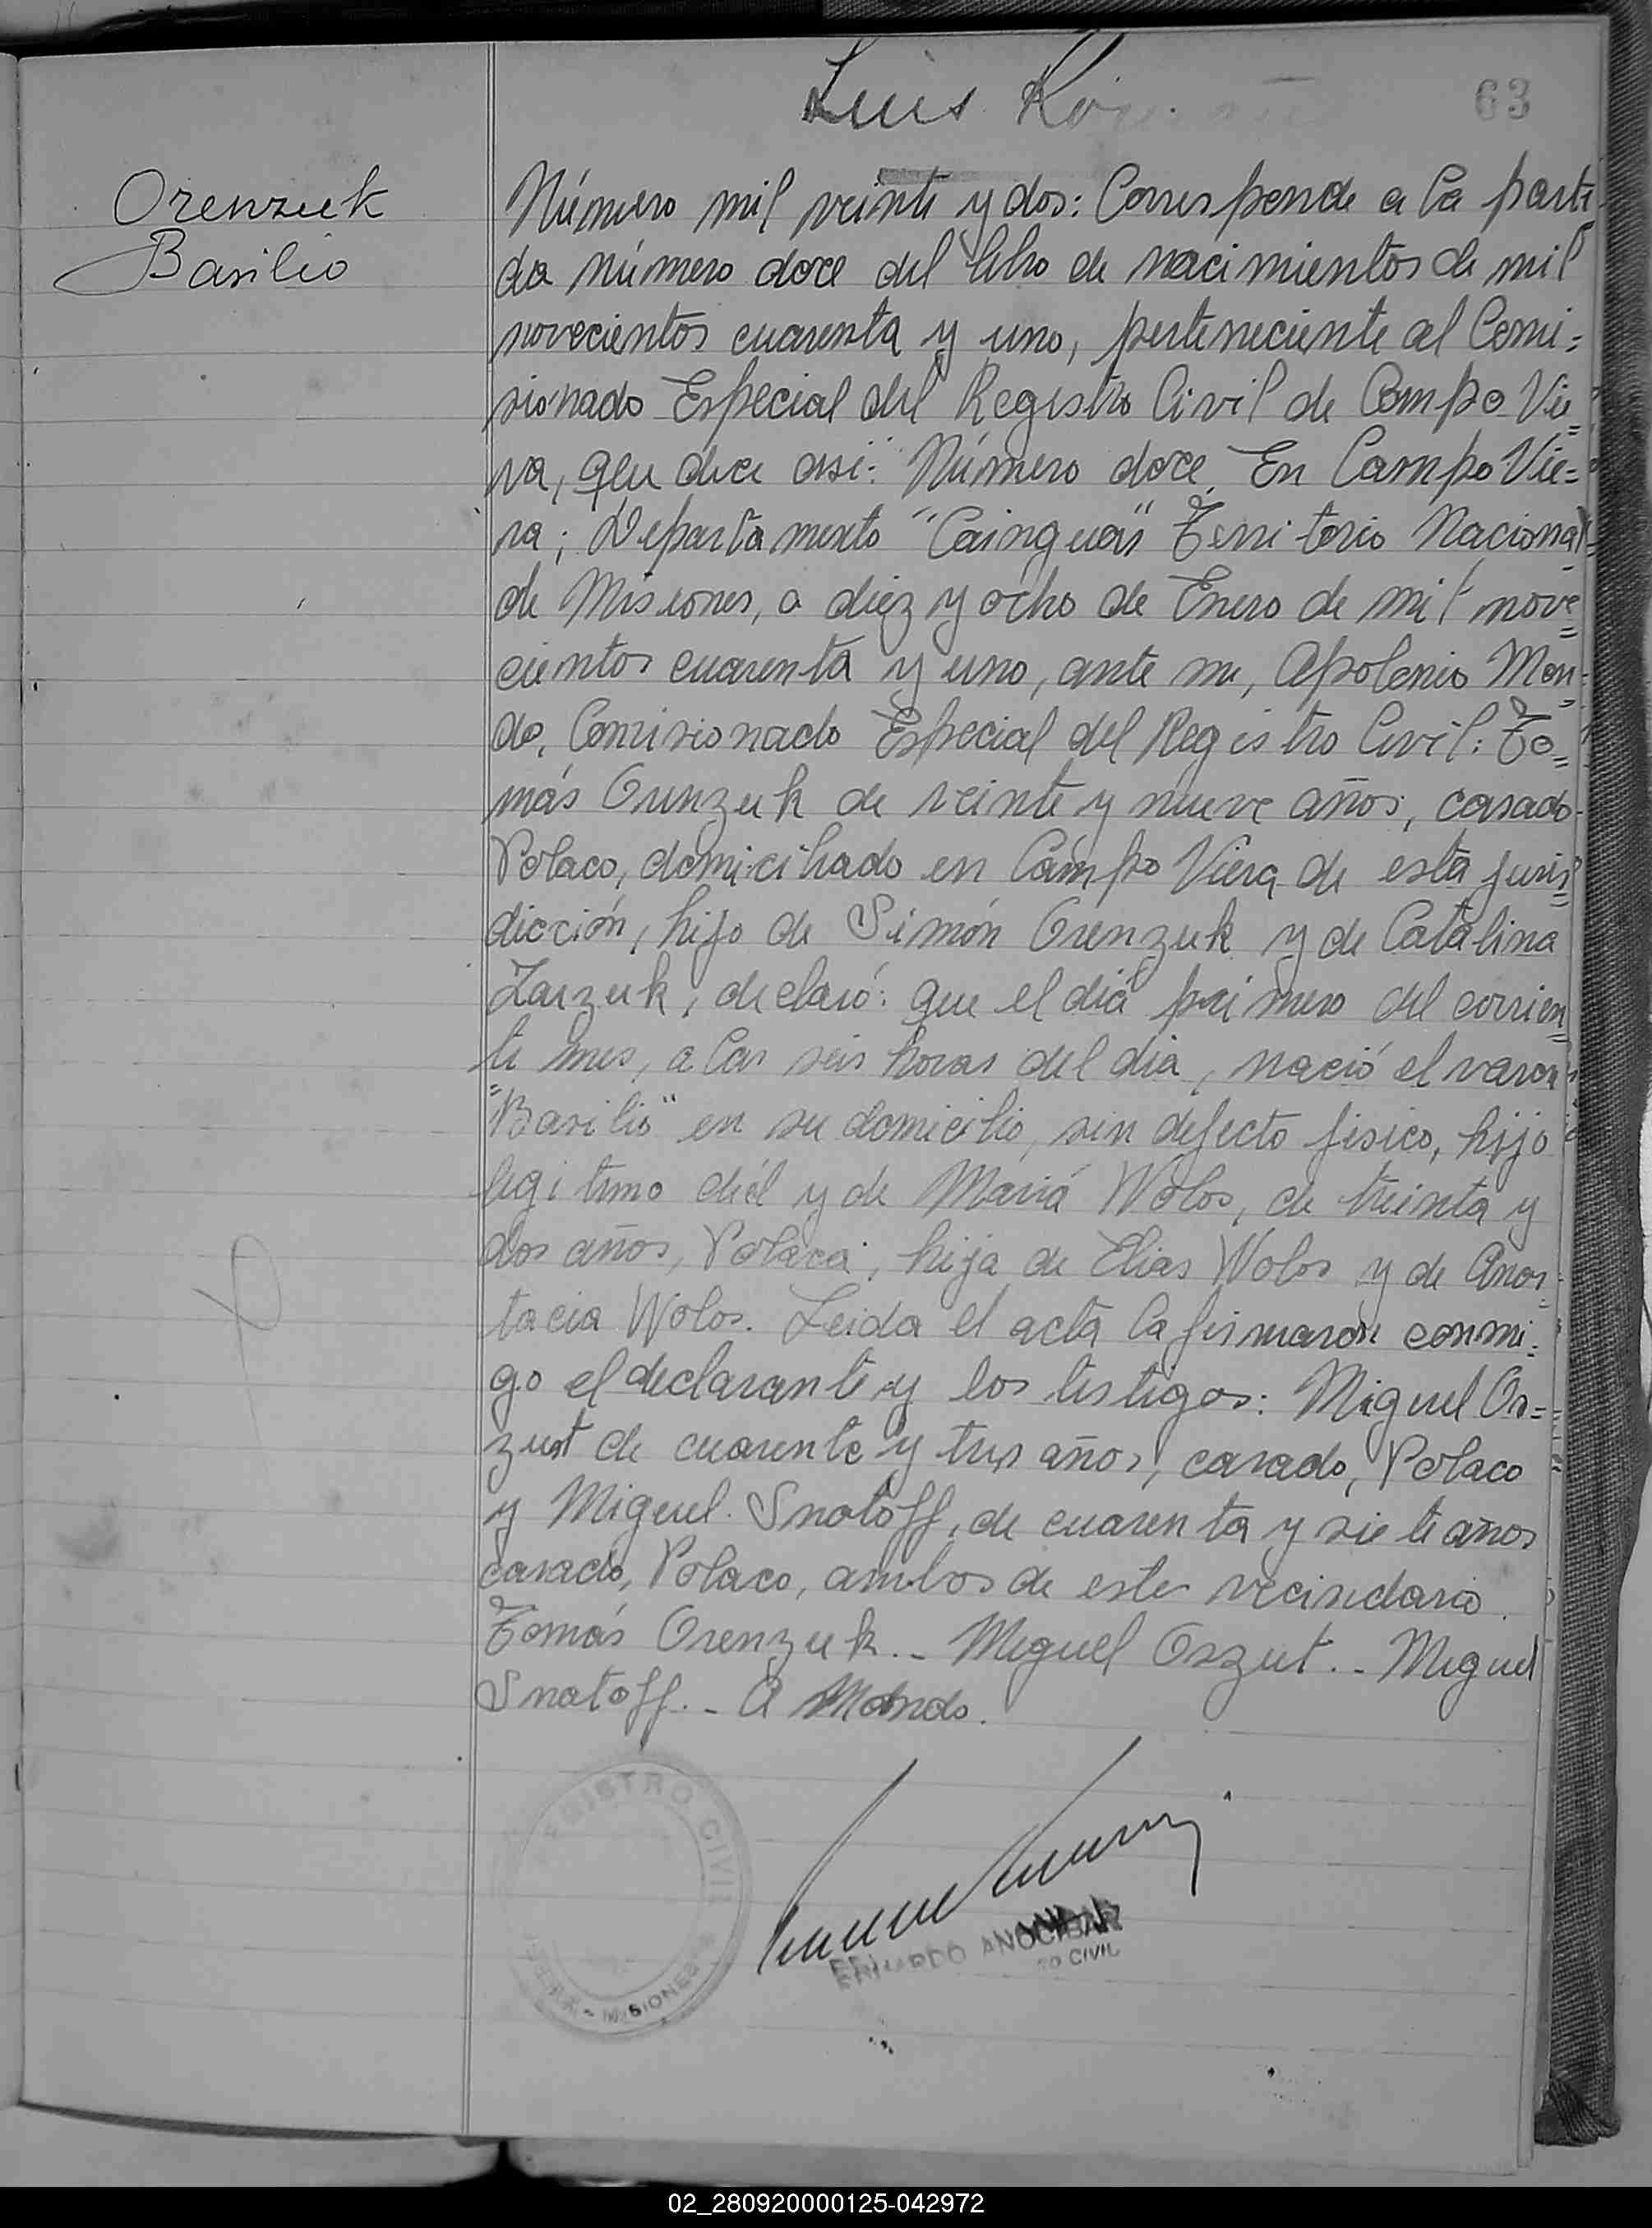 Luis
63
Orenzuk
Basilio
Número mil veinte y dos: Corresponde a la parti
da número doce del libro de nacimientos de mil
novecientos cuarenta y uno, perteneciente al Comi=
sionado Especial del Registro Civil de Campo Vie=
ra, que dice asi: "Número doce. En Campo Vie=
ra; Departamento "Cainguás" Territorio Nacional
de Misiones, a diez y ocho de Enero de mil nove=
cientos cuarenta y uno, ante mi, Apolonio Mon=
do, Comisionado Especial del Registro Civil: To=
más Orenzuk de veinte y nueve años, casado
Polaco, domicihado en Campo Viera, de esta juris=
dicción, hijo de Simón Orenzuk y de Catalina
Zarzuk, declaró: que el diá primero del corrien=
te mes, a las seis horas del dia, nació el varon
"Basilio" en su domicilio, sin defecto fisico, hijo
legitimo dél y de Mariá Wolos, de treinta y
dos años, Polaca, hija de Elias Wolos y de Anas=
tacia Wolos. Leida el acta la firmaron conmi=
go el declarante y los testigos: Miguel Os=
zust de cuarenta y tres años, casado, Polaco
y Miguel Snatoff, de cuarenta y siete años
casado, Polaco, ambos de este vecindario.
Tomás Orenzuk.- Miguel Oszut.- Miguel
Snatoff.- A Mondo.
REGISTRO CIVIL
- MISIONES
EDUARDO ANOCIBAR
CIVIL
02_280920000125-042972